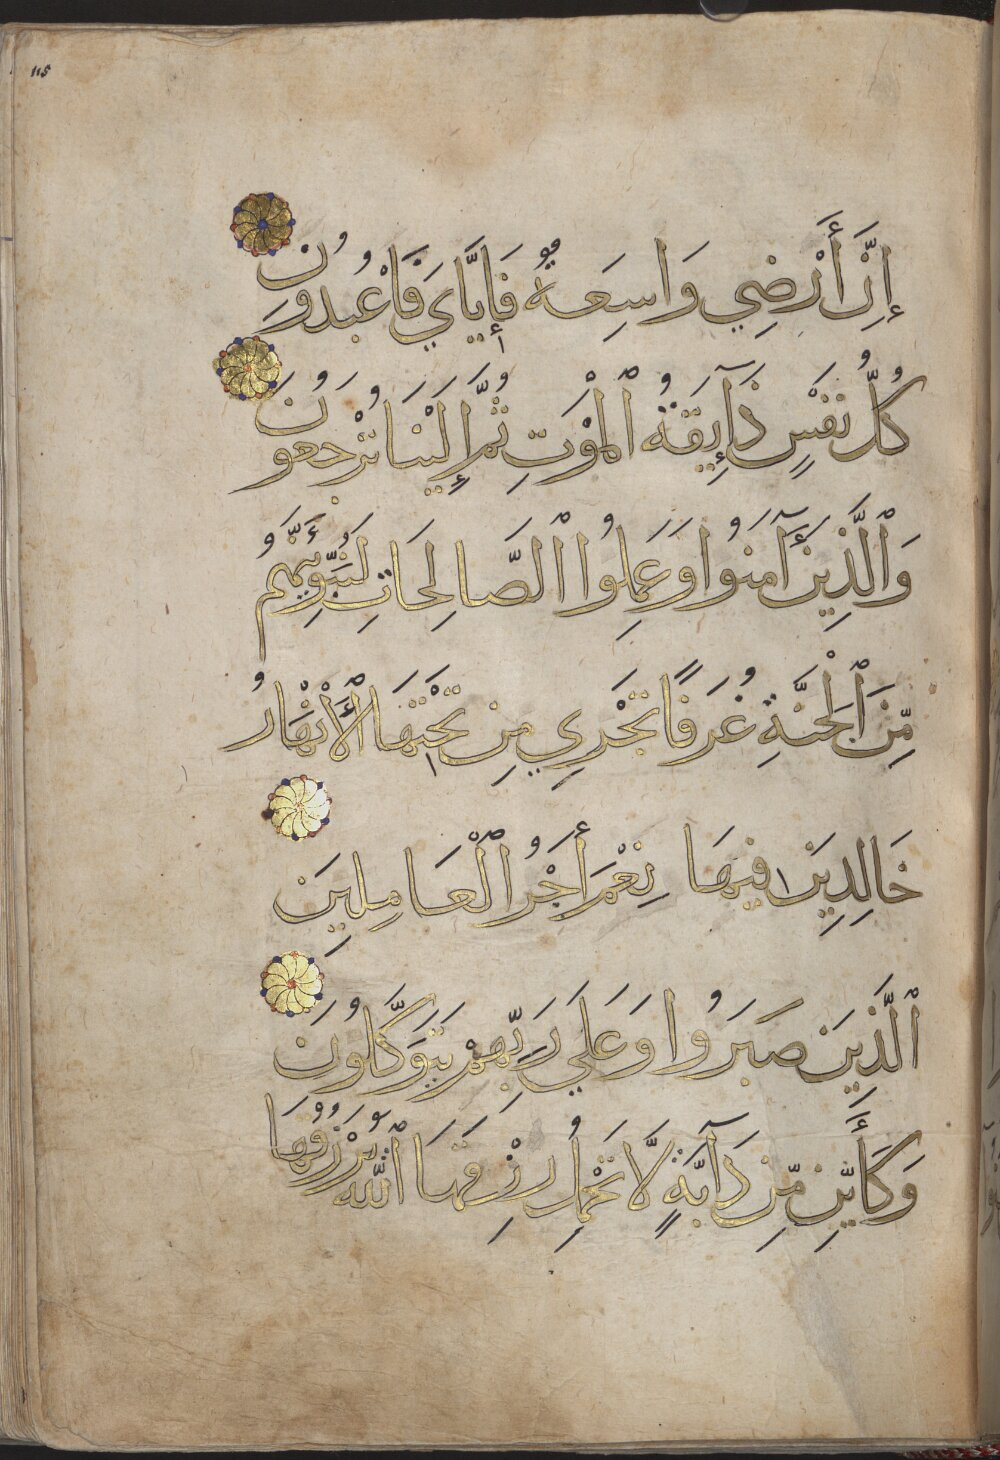 115
إِنَّ أَرْضِي وَاسِعَةٌ فَإِيَّايَ فَاعْبُدُونِ
كُلُّ نَفْسٍ ذَآئِقَةُ ٱلْمَوْتِ ثُمَّ إِلَيْنَا تُرْجَعُونَ
وَٱلَّذِينَ آمَنُوا وَعَمِلُوا ٱلصَّالِحَاتِ لَنُبَوِّئَنَّهُم
مِّنَ ٱلْجَنَّةِ غُرَفًا تَجْرِي مِن تَحْتِهَا ٱلْأَنْهَارُ
خَالِدِينَ فِيهَا نِعْمَ أَجْرُ ٱلْعَامِلِينَ
ٱلَّذِينَ صَبَرُوا وَعَلَى رَبِّهِمْ يَتَوَكَّلُونَ
وَكَأَيِّن مِّن دَآبَّةٍ لَّا تَحْمِلُ رِزْقَهَا ٱللَّهُ يَرْزُقُهَا